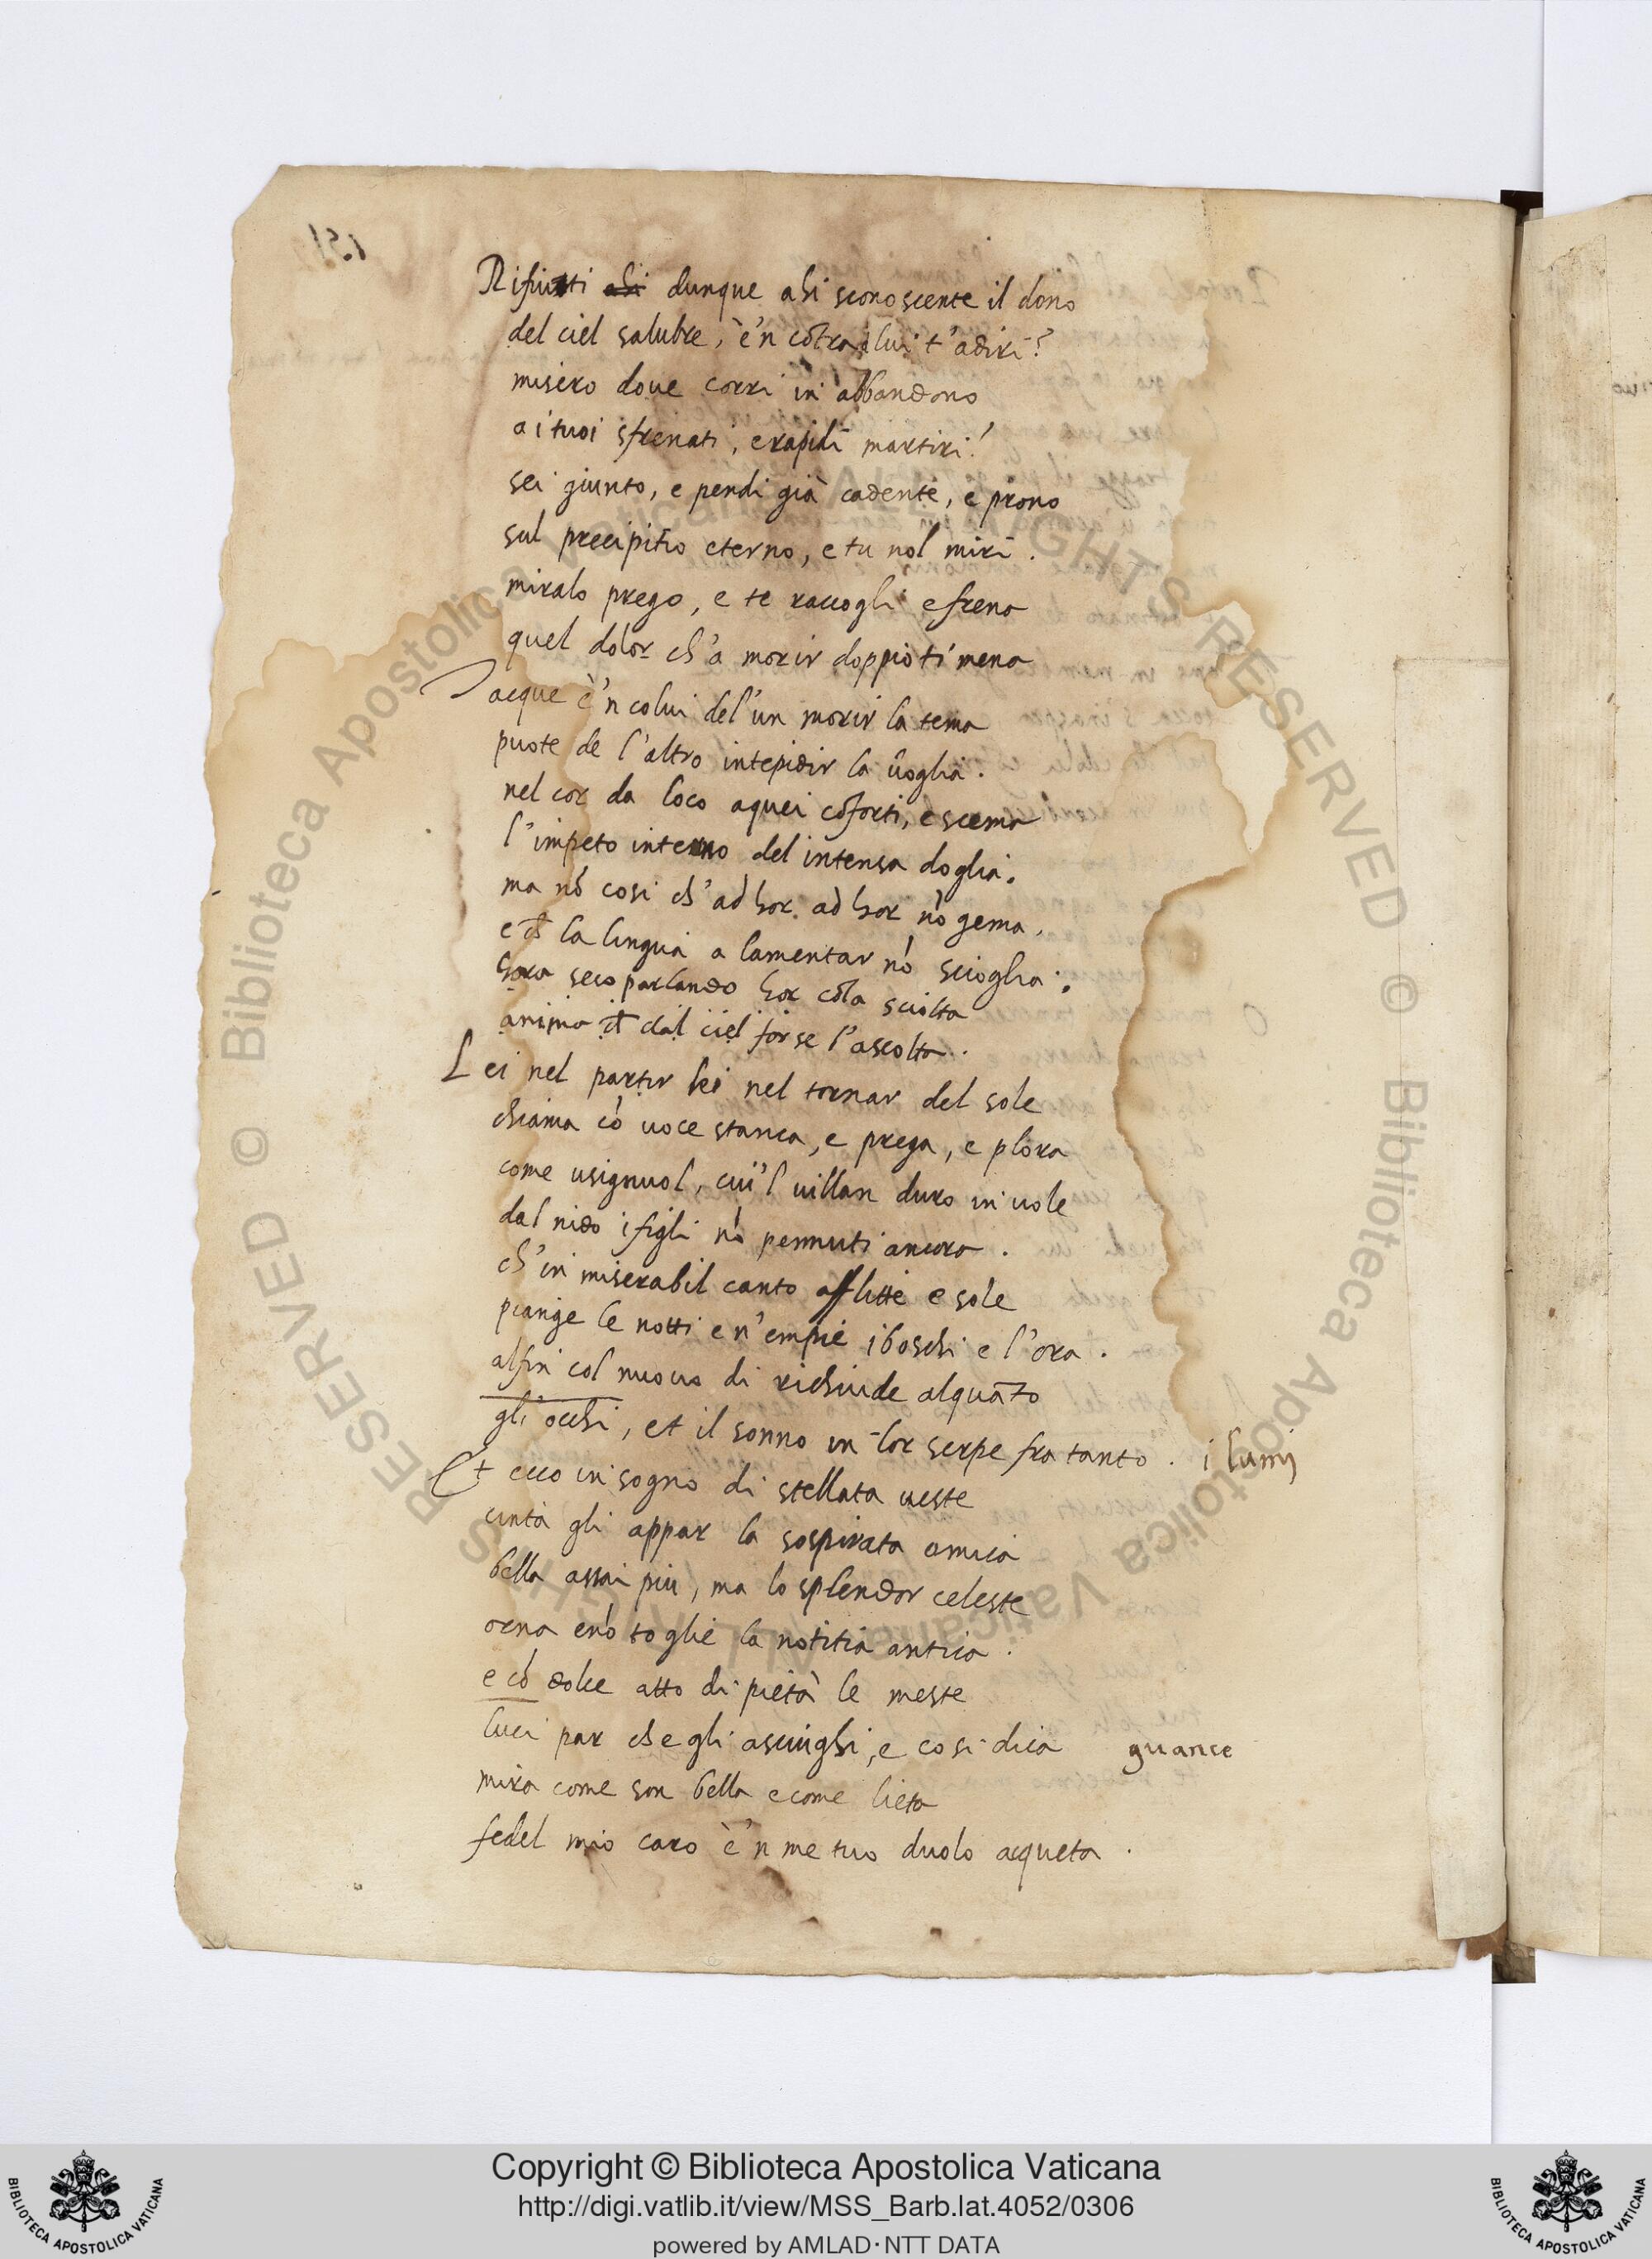 Rifiuti ahi dunque ahi sconoscente il dono
del ciel salubre, è'n cõtra lui t'adiri?
misero doue corri in abbandono
a i tuoi sfrenati, e rapidi martiri!
sei giunto, e pendi già cadente, e prono
sul precipitio eterno, e tu nol miri.
miralo prego, e te raccogli e frena
quel dolor ch'a morir doppio ti mena
Tacque è'n colui del'un morir la tema
puote de l'altro intepidir la uoglia.
nel cor da loco a quei cõforti, e scema
l'impeto interno del intensa doglia.
ma nõ cosi ch'ad hor ad hor nõ gema,
e la lingua a lamentar nõ scioglia.
hora seco parlando hor cõla sciolta
anima dal ciel forse l'ascolta.
Lei nel partir lei nel tornar del sole
chiama cõ uoce stanca, e prega, e plora
come usignuol, cui'l uillan duro inuole
dal nido i figli nõ pennuti ancora.
ch'in miserabil canto afflitte e sole
piange le notti e n'empie i boschi e l'ora.
alfin col nuouo di richiude alquãto
gli occhi, et il sonno in lor serpe fra tanto. i lumi
Et ecco in sogno di stellata ueste
cinta gli appar la sospirata amica
bella assai più, ma lo splendor celeste
orna e nõ toglie la notitia antica.
e cõ dolce atto di pietà le meste
luci par che gli asciughi, e cosi dica guance
mira come son bella e come lieta
fedel mio caro è'n me tuo duolo acqueta.
Copyright © Biblioteca Apostolica Vaticana
http://digi.vatlib.it/view/MSS_Barb.lat.4052/0306
powered by AMLAD·NTT DATA
BIBLIOTECA APOSTOLICA VATICANA
BIBLIOTECA APOSTOLICA VATICANA